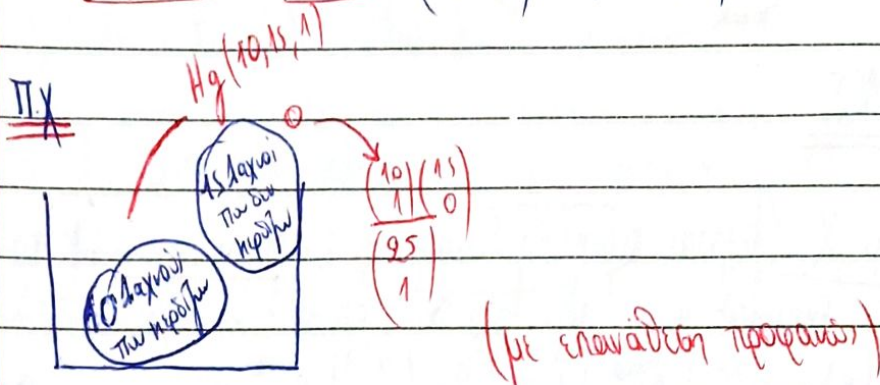 Hg(10,15,1)
Π.Χ
15 λαχνοί
που δεν
κερδίζουν
10 λαχνούς
που κερδίζουν
(10 1) (15 0)
(25 1)
(με επανάθεση προφανώς)